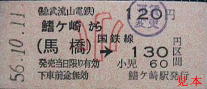 (総武流山電鉄)
鰭ケ崎から 120円
(馬橋) 国鉄線 → 130円区間
56.10.11
発売当日限り有効 小児 60
下車前途無効 鰭ケ崎駅発行
見本